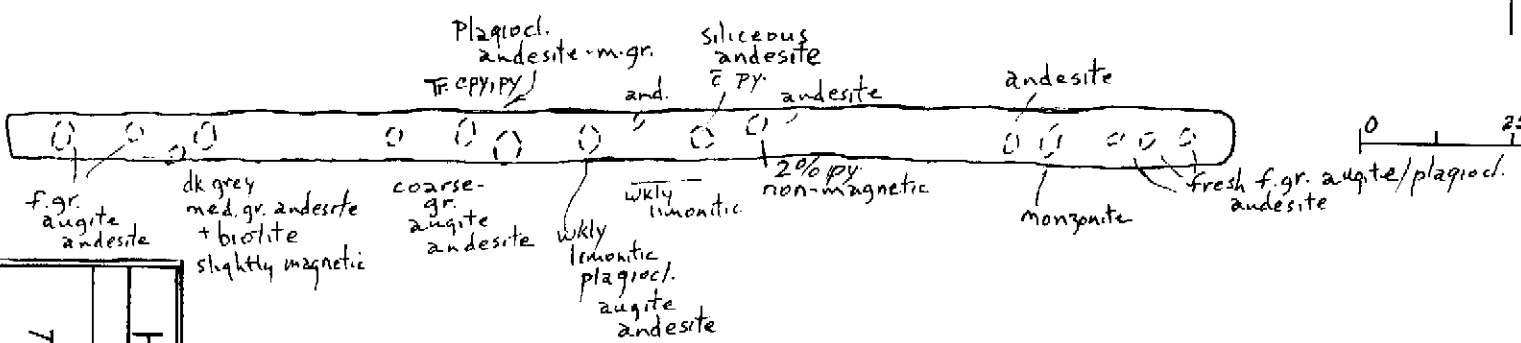 Plagiocl.
andesite-m.gr.
Tr. cpy, py
and.
siliceous
andesite
c̄ py.
andesite
andesite
0
25
f.gr.
augite
andesite
dk grey
med. gr. andesite
+ biotite
slightly magnetic
coarse-
gr.
augite
andesite
wkly
limonitic
plagiocl.
augite
andesite
wkly
limonitic
2% py
non-magnetic
monzonite
fresh f.gr. augite/plagiocl.
andesite